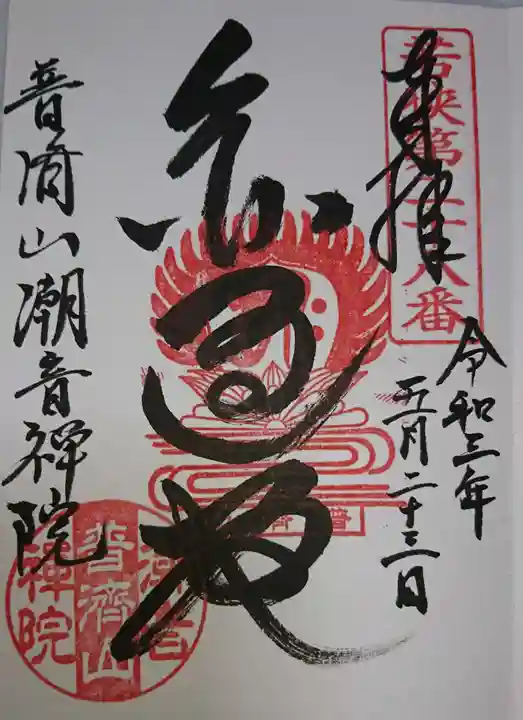 若狭第二十八番
奉拝
令和三年
五月二十三日
普済山潮音禅院
潮音
普濟山
禅院